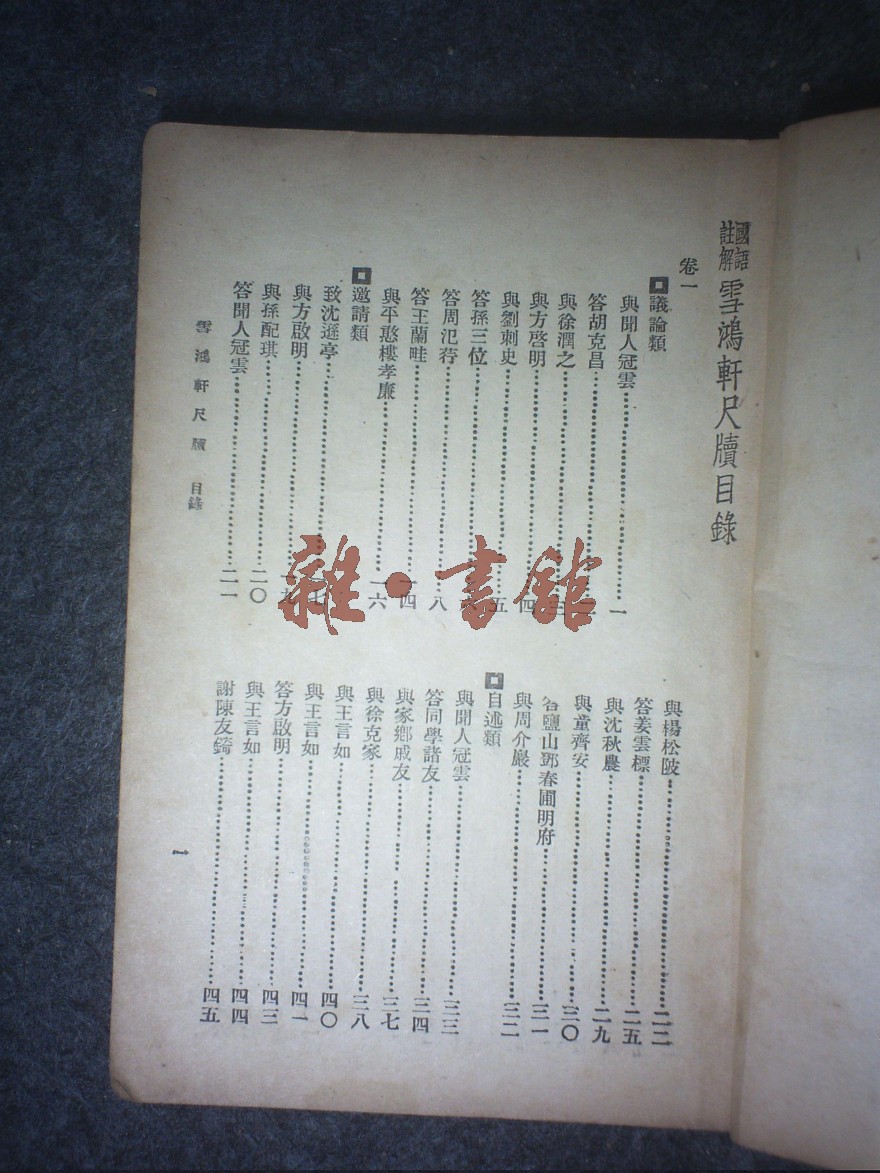 國語註解 雪鴻軒尺牘目錄
卷一
議論類
與聞人冠雲 一
答胡克昌 二
與徐潤之 三
與方啓明 四
與劉刺史 五
答孫三位
答周氾荇 八
答王蘭畦 一四
與平憨樓孝廉 一六
邀請類
致沈遜亭
與方啟明 一九
與孫配琪 二〇
答聞人冠雲 二一
與楊松陂 二二
答姜雲標 二五
與沈秋農 二九
與童齊安 三〇
答鹽山鄧春圃明府 三一
與周介巖 三二
自述類
與聞人冠雲 三三
答同學諸友 三四
與家鄉戚友 三七
與徐克家 三八
與王言如 四〇
與王言如 四一
答方啟明 四三
與王言如 四四
謝陳友錡 四五
雪鴻軒尺牘 目錄
一
雜·書館